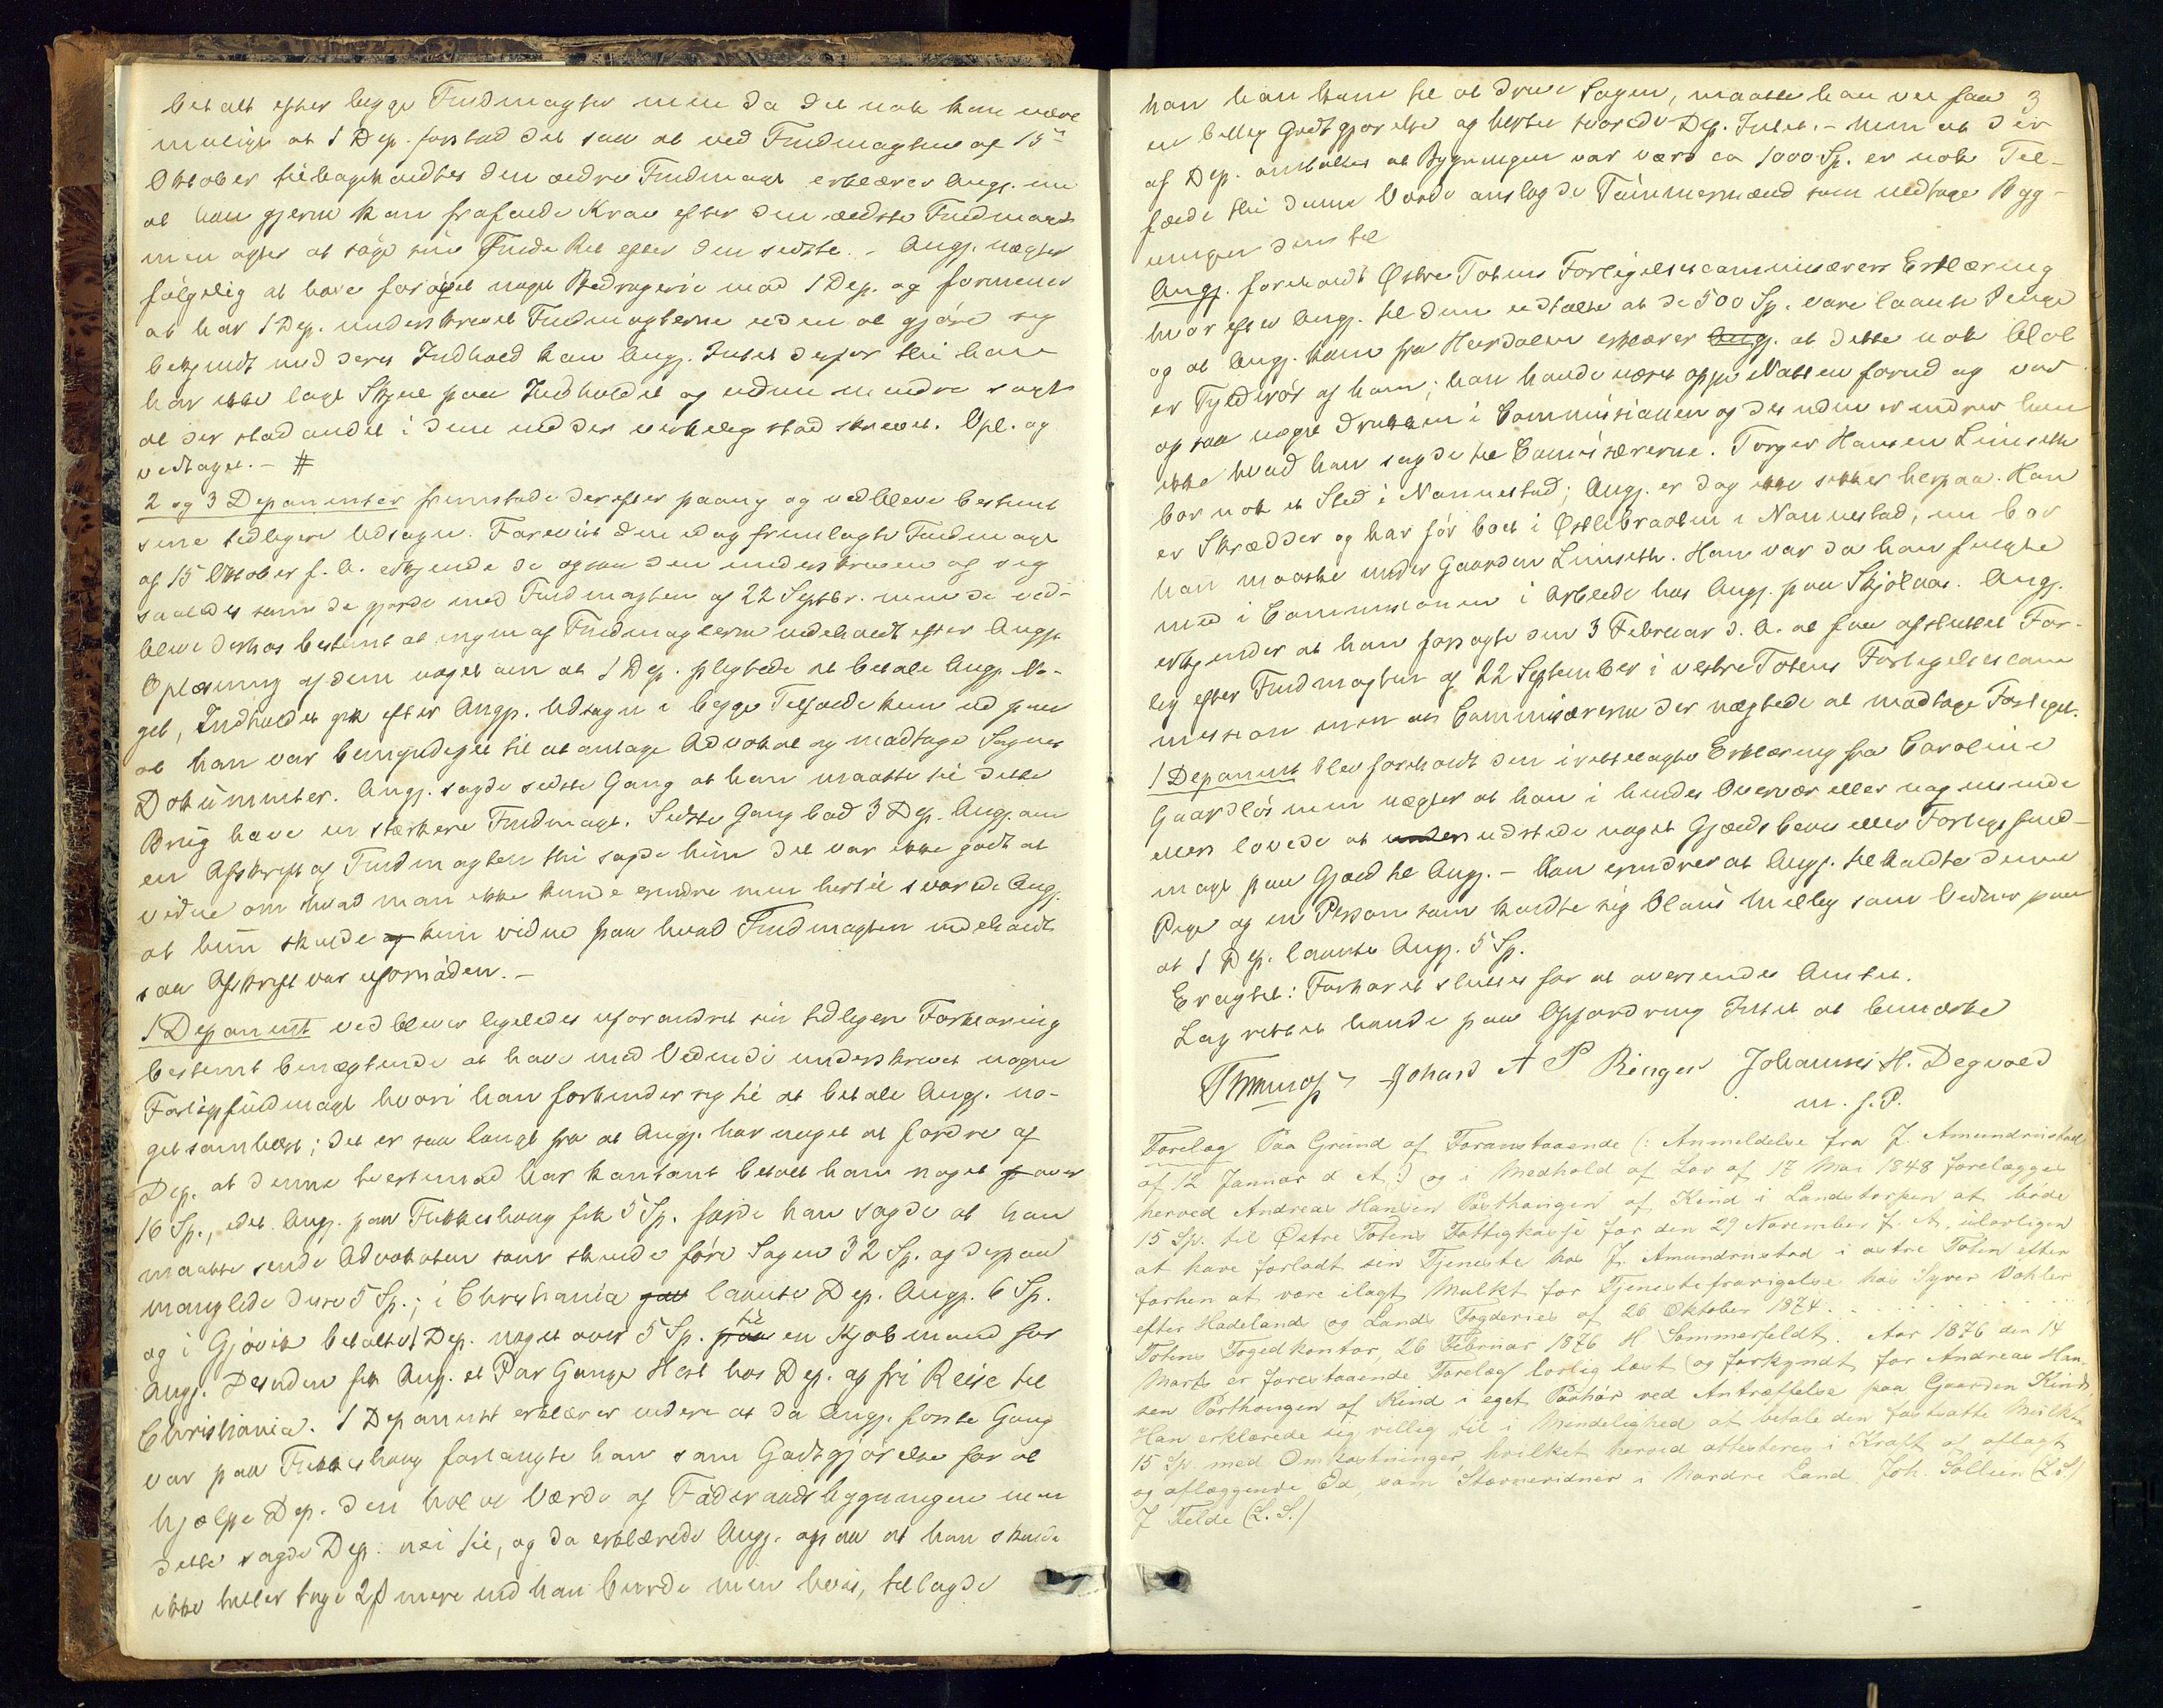 betalt efter begge Fuldmagter men da det nok kan være
muligt at 1 Dep. forstod det saa at ved Fuldmagten af 15de
Oktober tilbagekaldtes den ældre Fuldmagt erklærer Angj. nu
at han gjerne kan frafalde Krav efter den ældste Fuldmagt
men agter at søge sin Fulde Ret efter den sidste. - Angj. nægter
følgelig at have forøvet noget Bedrageri mod 1 Dep. og formener
at har 1 Dep. underskrevet Fuldmagterne uden at gjøre sig
bekjendt med deres Indhold kan Angj. Intet derfor thi han
har ikke lagt Skjul paa Indholdet og endnu mindre sagt
at der stod andet i dem end der virkelig stod skrevet. Opl. og
vedtaget. - #
2 og 3 Deponenter fremstode derefter paany og vedbleve bestemt
sine tidligere Udsagn. Forevist den idag fremlagte Fuldmagt
af 15 Oktober f. A. erkjende de ogsaa den underskreven af sig
saaledes som de gjorde med Fuldmagten af 22 Septbr. men de ved-
bleve derhos bestemt at ingen af Fuldmagterne indeholdt efter Angjs
Oplæsning af dem noget om at 1 Dep. pligtede at betale Angj. No-
get, Indholdet gik efter Angjs. Udsagn i begge Tilfælde kun ud paa
at han var bemyndiget til at antage Advokat og modtage Sagens
Dokumenter. Angj. sagde sidste Gang at han maatte til dette
Brug have en stærkere Fuldmagt. Sidste Gang bad 3 Dep. Angj. om
en Afskrift af Fuldmagten thi sagde hun det var ikke godt at
vidne om hvad man ikke kunde erindre men hertil svarede Angj.
at hun skulde og kun vidne paa hvad Fuldmagten indeholdt
saa Afskrift var ufornøden. -
1 Deponent vedblever ligeledes uforandret sin tidligere Forklaring
bestemt benægtende at have med Vidende underskrevet nogen
Forligsfuldmagt hvori han forbinder sig til at betale Angj. no-
getsomhelst; det er saa langt fra at Angj. har noget at fordre af
Dep. at denne tvertimod har kontant betalt ham noget over
16 Sp., idet Angj. paa Fikkeshaug fik 5 Sp. fordi han sagde at han
maatte sende Advokaten som skulde føre Sagen 32 Sp. og derpaa
manglede disse 5 Sp.; i Christiania laante Dep. Angj. 6 Sp.
og i Gjøvik betalte 1 Dep. noget over 5 Sp. til en Kjøbmand for
Angj. Desuden fik Angj. et Par Gange Hest hos Dep. og fri Reise til
Christiania. 1 Deponent erklærer videre at da Angj. første Gang
var paa Fikkeshaug forlangte han som Godtgjørelse for at
hjælpe Dep. den halve Værdi af Føderaadsbygningen men
dette sagde Dep. nei til, og da erklærede Angj. ogsaa at han skulde
ikke heller tage 2ß mere end han burde men hvis, tillagde
3
han han kom til at drive Sagen, maatte han vel faa
en billig Godtgjørelse og hertil svarede Dep. Intet. - Men at der
af Dep. omtaltes at Bygningen var værd ca 1000 Sp. er nok Til-
fælde thi denne Værdi anslog de Tømmermænd som nedtage Byg-
ningen den til
Angj. foreholdt Østre Totens Forligelsescommissærers Erklæring
hvorefter Angj. til dem udtalte at de 500 Sp. vare laante Penge
og at Angj. kom fra Hurdalen erklærer Angj. at dette nok blot
er Tyldrør af ham; han havde været oppe Natten forud og var
ogsaa noget drukken i Commissionen og desuden erindrer han
ikke hvad han sagde til Commissærerne. Torger Hansen Linseth
bor nok et Sted i Nannestad; Angj. er dog ikke sikker herpaa. Han
er Skrædder og har før boet i Østlibraaten i Nannestad, nu bor
han maaske under Gaarden Linseth. Han var da han fulgte
med i Commissionen i Arbeide hos Angj. paa Skjølaas. Angj.
erkjender at han forsøgte den 3 Februar d. A. at faa afsluttet For-
lig efter Fuldmagten af 22 September i vestre Totens Forligelsescom
mission men at Commissærerne der nægtede at modtage Forliget.
1 Deponent blev foreholdt den i retlagte Erklæring fra Caroline
Gaardløs men nægter at han i hendes Overvær eller nogensinde
ellers lovede at udstede noget Gjældsbevis eller Forligsfuld-
magt paa Gjæld til Angj. - Han erindrer at Angj. tilkaldte denne
Pige og en Person som kaldte sig Olaus Melby som Vidner paa
at 1 Dep. laante Angj. 5 Sp.
Eragtet: Forhøret sluttes for at oversendes Amtet.
Lagrettet havde paa Opfordring Intet at bemærke
Johans A P Ringen Johannes H. Degvold
m. f. P.
Forelæg Paa Grund af Foranstaaende (: Anmeldelse fra J. Amundrudstad
af 12 Januar d A :) og i Medhold af Lov af 17 Mai 1848 forelægges
herved Andreas Hansen Porthougen af Kind i Landstorpen at bøde
15 Sp. til Østre Totens Fattigkasse for den 29 November f. A. ulovligen
at have forladt sin Tjeneste hos J. Amundrustad i østre Toten efter
forhen at være ilagt Mulkt for Tjenestefravigelse hos Syver Vohler
efter Hadelands og Lands Fogderies af 26 Oktober 1874. . . . . . . . .
Totens Fogedkontor, 26 Februar 1876 H Sommerfeldt. Aar 1876 den 14
Marts er forestaaende Forelæg lovlig læst og forkyndt for Andreas Han-
sen Porthougen af Kind i eget Paahør ved Antræffelse paa Gaarden Kind.
Han erklærede sig villig til i Mindelighed at betale den fastsatte Mulkt
15 Sp. med Omkostninger, hvilket herved attesteres i Kraft af aflagt
og aflæggende Ed, som Stævnevidner i Nordre Land. Joh Sollien (L.S.)
J Felde (L.S.)